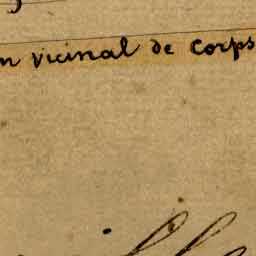 n vicinal de Corps